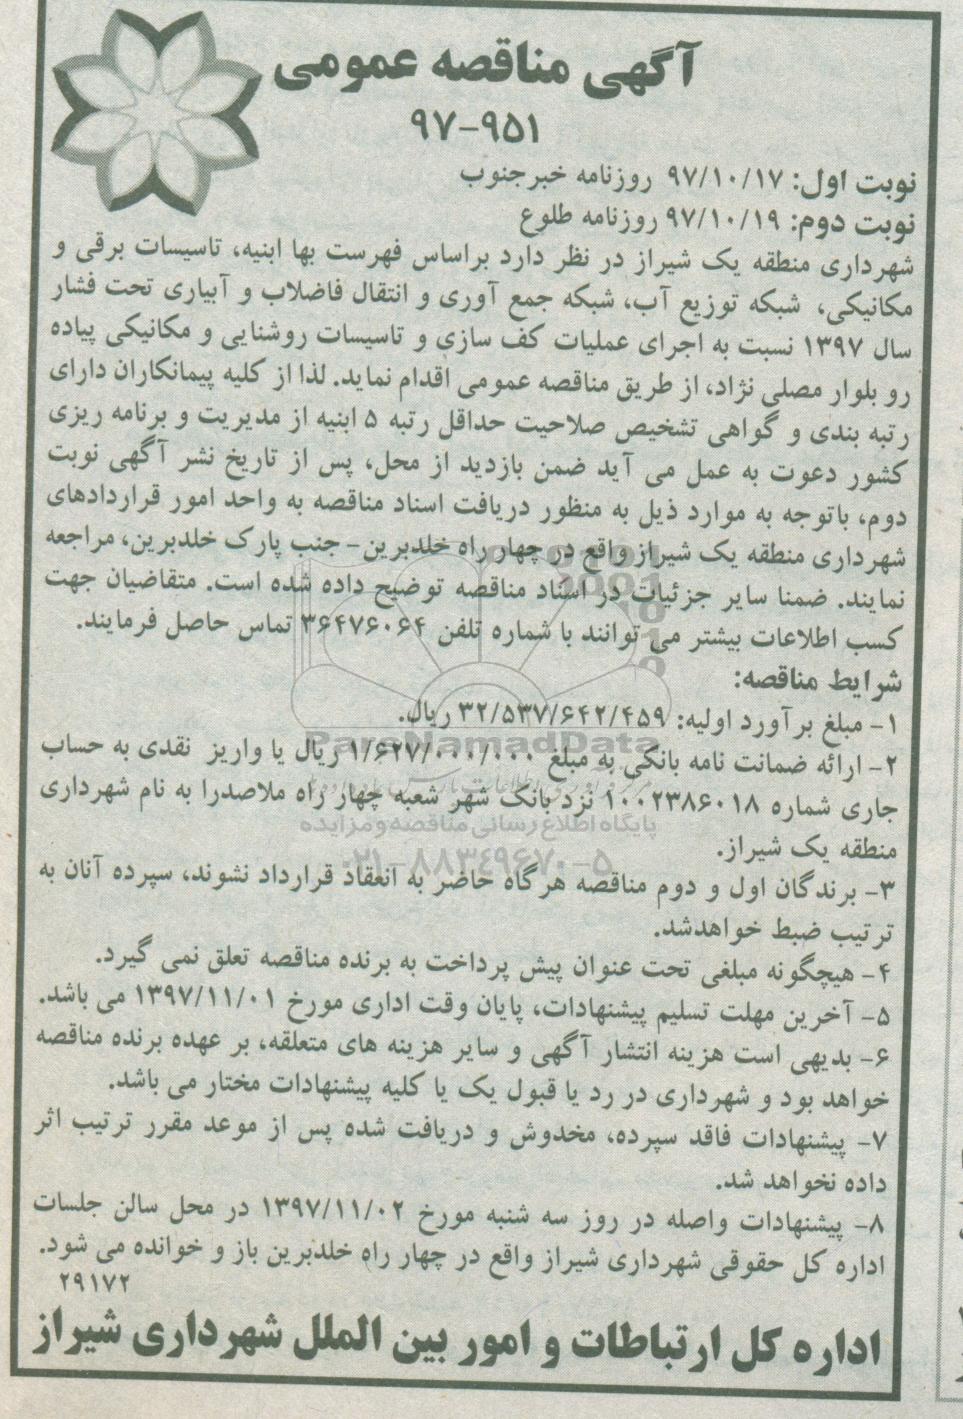 آگهی مناقصه عمومی
۹۷-۹۵۱
نوبت اول: ۹۷/۱۰/۱۷ روزنامه خبرجنوب
نوبت دوم: ۹۷/۱۰/۱۹ روزنامه طلوع
شهرداری منطقه یک شیراز در نظر دارد براساس فهرست بها ابنیه، تاسیسات برقی و
مکانیکی، شبکه توزیع آب، شبکه جمع آوری و انتقال فاضلاب و آبیاری تحت فشار
سال ۱۳۹۷ نسبت به اجرای عملیات کف سازی و تاسیسات روشنایی و مکانیکی پیاده
رو بلوار مصلی نژاد، از طریق مناقصه عمومی اقدام نماید. لذا از کلیه پیمانکاران دارای
رتبه بندی و گواهی تشخیص صلاحیت حداقل رتبه ۵ ابنیه از مدیریت و برنامه ریزی
کشور دعوت به عمل می آید ضمن بازدید از محل، پس از تاریخ نشر آگهی نوبت
دوم، باتوجه به موارد ذیل به منظور دریافت اسناد مناقصه به واحد امور قراردادهای
شهرداری منطقه یک شیراز واقع در چهار راه خلدبرین- جنب پارک خلدبرین، مراجعه
نمایند. ضمنا سایر جزئیات در اسناد مناقصه توضیح داده شده است. متقاضیان جهت
کسب اطلاعات بیشتر می توانند با شماره تلفن ۳۶۴۷۶۰۶۴ تماس حاصل فرمایند.
شرایط مناقصه:
۱- مبلغ برآورد اولیه: ۳۲/۵۳۷/۶۴۲/۴۵۹ ریال.
ParsNamadData
۲- ارائه ضمانت نامه بانکی به مبلغ ۱/۶۲۷/۰۰۰/۰۰۰ ریال یا واریز نقدی به حساب
جاری شماره ۱۰۰۲۳۸۶۰۱۸ نزد بانک شهر شعبه چهار راه ملاصدرا به نام شهرداری
پایگاه اطلاع رسانی مناقصه و مزایده
منطقه یک شیراز.
۰۲۱-۸۸۳۴۹۶۷۰-۵
۳- برندگان اول و دوم مناقصه هرگاه حاضر به انعقاد قرارداد نشوند، سپرده آنان به
ترتیب ضبط خواهدشد.
۴- هیچگونه مبلغی تحت عنوان پیش پرداخت به برنده مناقصه تعلق نمی گیرد.
۵- آخرین مهلت تسلیم پیشنهادات، پایان وقت اداری مورخ ۱۳۹۷/۱۱/۰۱ می باشد.
۶- بدیهی است هزینه انتشار آگهی و سایر هزینه های متعلقه، بر عهده برنده مناقصه
خواهد بود و شهرداری در رد یا قبول یک یا کلیه پیشنهادات مختار می باشد.
۷- پیشنهادات فاقد سپرده، مخدوش و دریافت شده پس از موعد مقرر ترتیب اثر
داده نخواهد شد.
۸- پیشنهادات واصله در روز سه شنبه مورخ ۱۳۹۷/۱۱/۰۲ در محل سالن جلسات
اداره کل حقوقی شهرداری شیراز واقع در چهار راه خلدبرین باز و خوانده می شود.
۲۹۱۷۲
اداره کل ارتباطات و امور بین الملل شهرداری شیراز